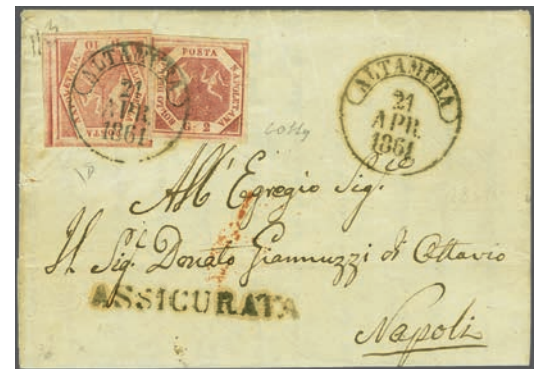 ALTAMURA
21
APR.
1861
POSTA
NAPOLETANA
BOLLO DELLA
G. 2
ALTAMURA
21
APR.
1861
All' Egregio Sig.
Il Sig. Donato Giannuzzi di Ottavio
ASSICURATA
Napoli